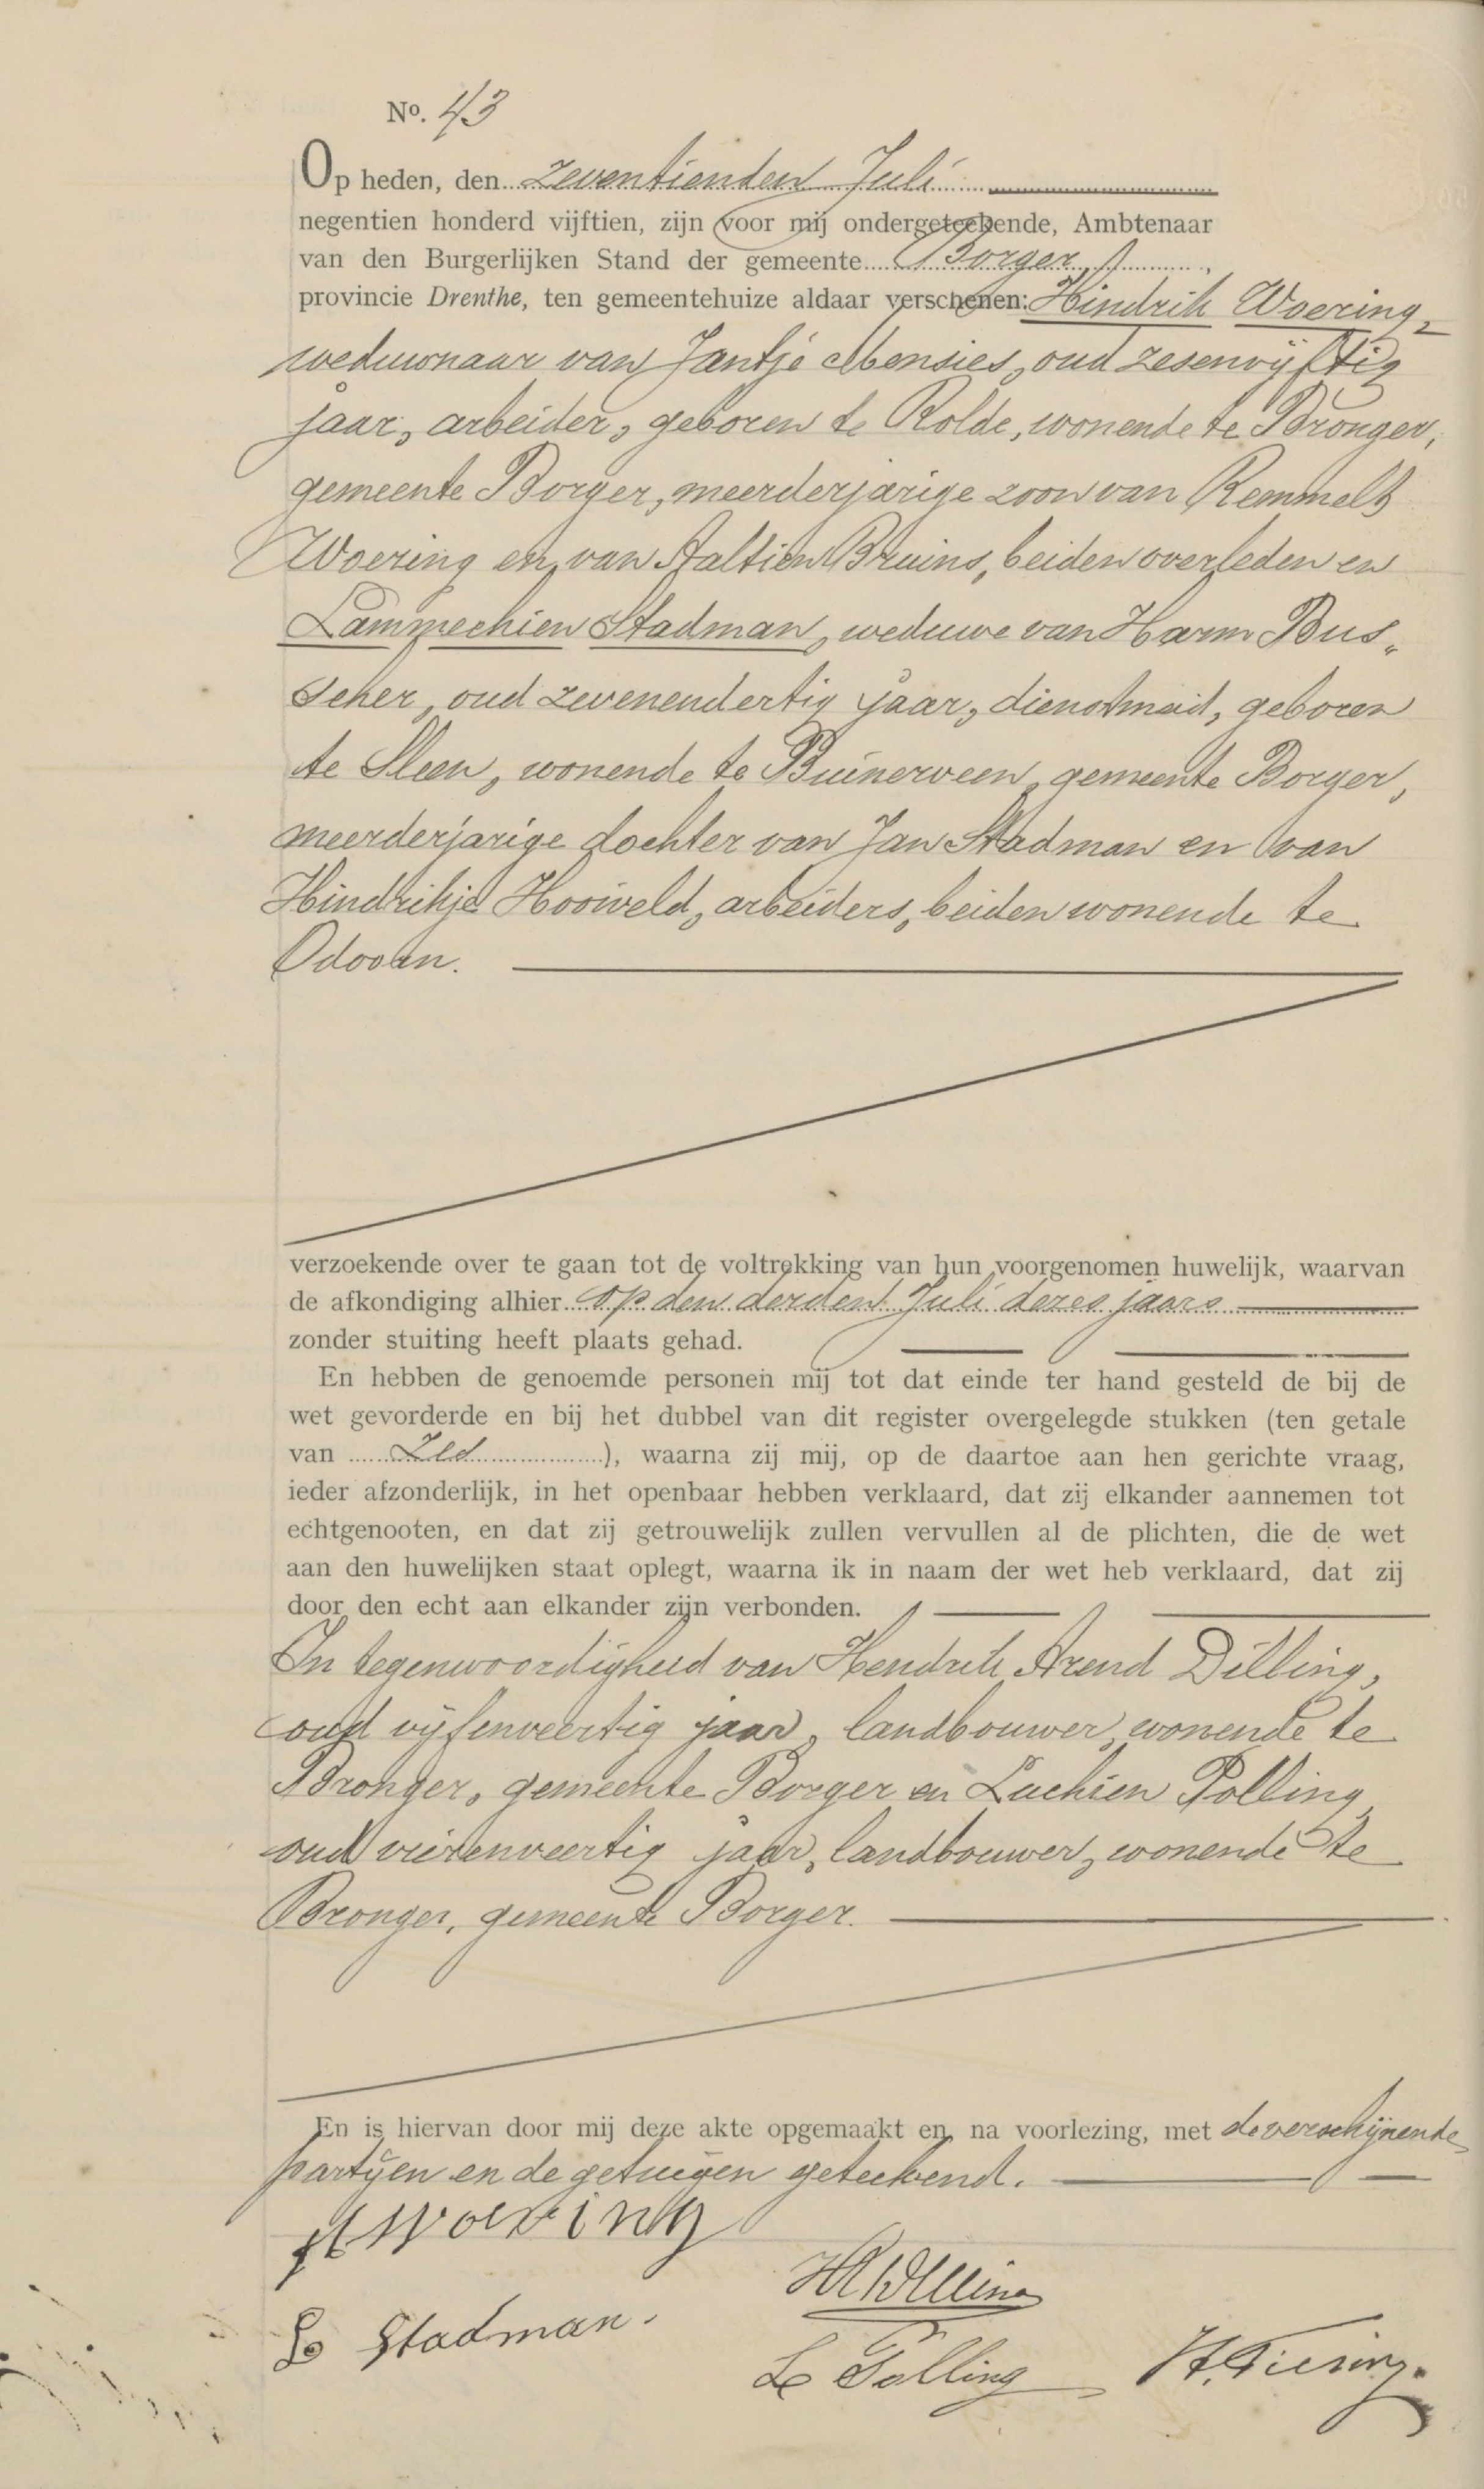 No. 43
Op heden, den zeventienden Juli
negentien honderd vijftien, zijn voor mij ondergeteekende, Ambtenaar
van den Burgerlijken Stand der gemeente Borger,
provincie Drenthe, ten gemeentehuize aldaar verschenen: Hindrik Woering,
weduwnaar van Jantje Mensies, oud zesenvijftig
jaar, arbeider, geboren te Rolde, wonende te Bronger,
gemeente Borger, meerderjarige zoon van Remmelt
Woering en van Aaltien Bruins, beiden overleden en
Lammechien Stadman, weduwe van Harm Bus„
scher, oud zevenendertig jaar, dienstmeid, geboren
te Sleen, wonende te Buinerveen, gemeente Borger,
meerderjarige dochter van Jan Stadman en van
Hindrikje Hooiveld, arbeiders, beiden wonende te
Odoorn.
verzoekende over te gaan tot de voltrekking van hun voorgenomen huwelijk, waarvan
de afkondiging alhier op den derden Juli dezes jaars
zonder stuiting heeft plaats gehad.
En hebben de genoemde personen mij tot dat einde ter hand gesteld de bij de
wet gevorderde en bij het dubbel van dit register overgelegde stukken (ten getale
van Zes), waarna zij mij, op de daartoe aan hen gerichte vraag,
ieder afzonderlijk, in het openbaar hebben verklaard, dat zij elkander aannemen tot
echtgenooten, en dat zij getrouwelijk zullen vervullen al de plichten, die de wet
aan den huwelijken staat oplegt, waarna ik in naam der wet heb verklaard, dat zij
door den echt aan elkander zijn verbonden.
In tegenwoordigheid van Hendrik Arend Dilling,
oud vijfenveertig jaar, landbouwer, wonende te
Bronger, gemeente Borger en Luchien Polling,
oud vierenveertig jaar, landbouwer, wonende te
Bronger, gemeente Borger.
En is hiervan door mij deze akte opgemaakt en, na voorlezing, met de verschijnende
partijen en de getuigen geteekend.
H Woering
HADilling
L Stadman.
L Polling H. Tiesing.